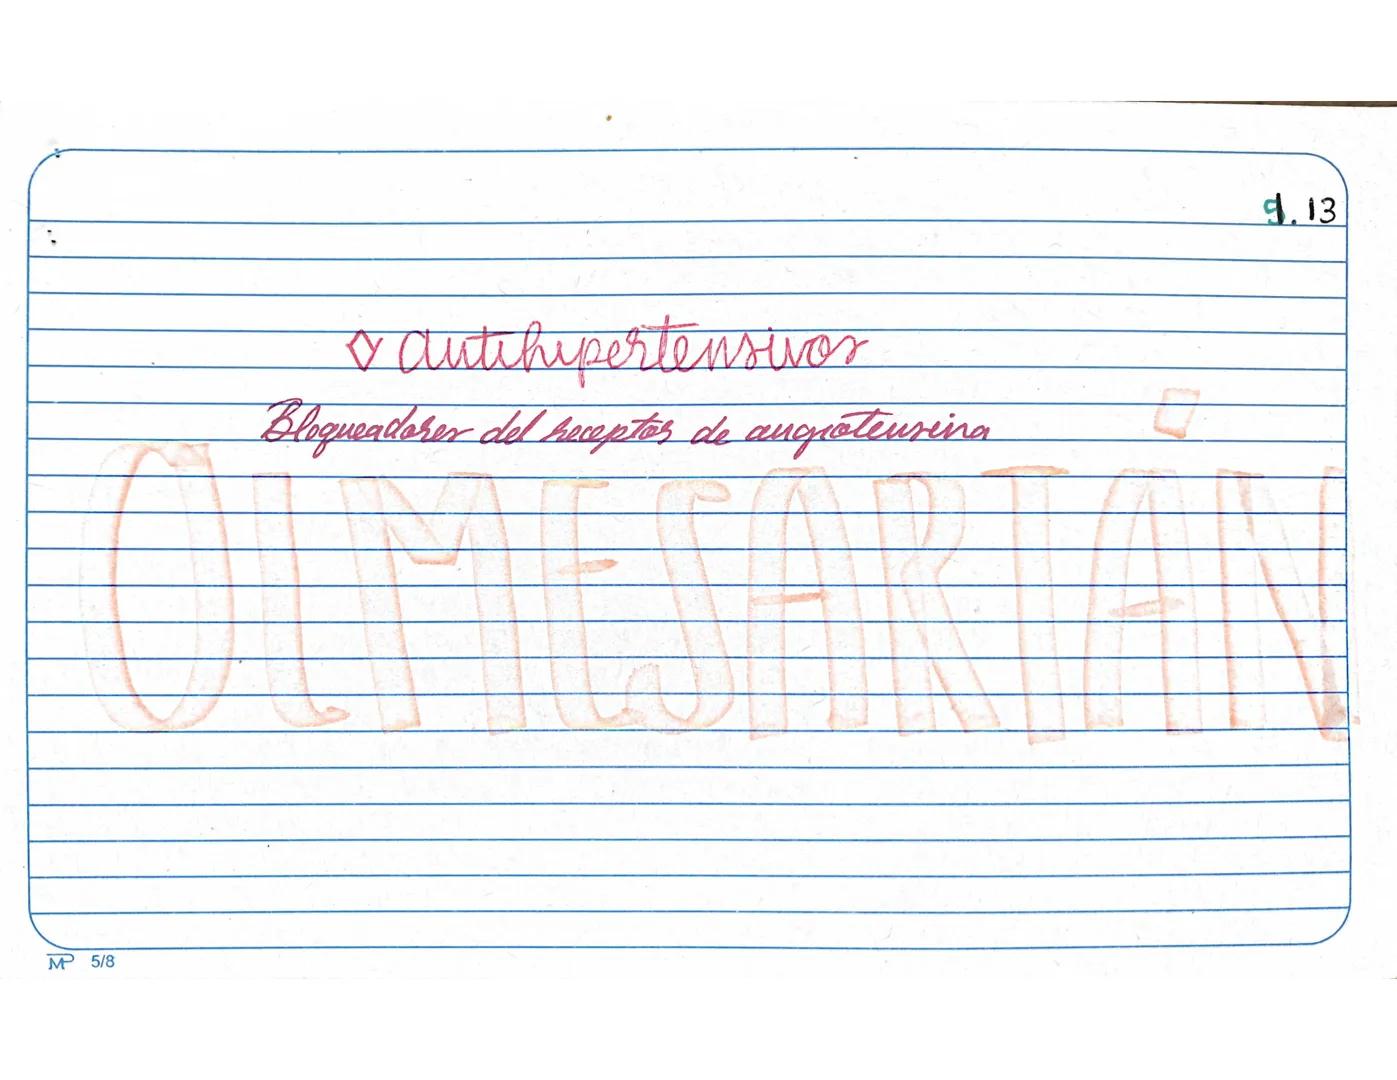 1.13
◇ Antihipertensivos
Bloqueadores del receptor de angiotensina
OLMESARTÁN
MP 5/8